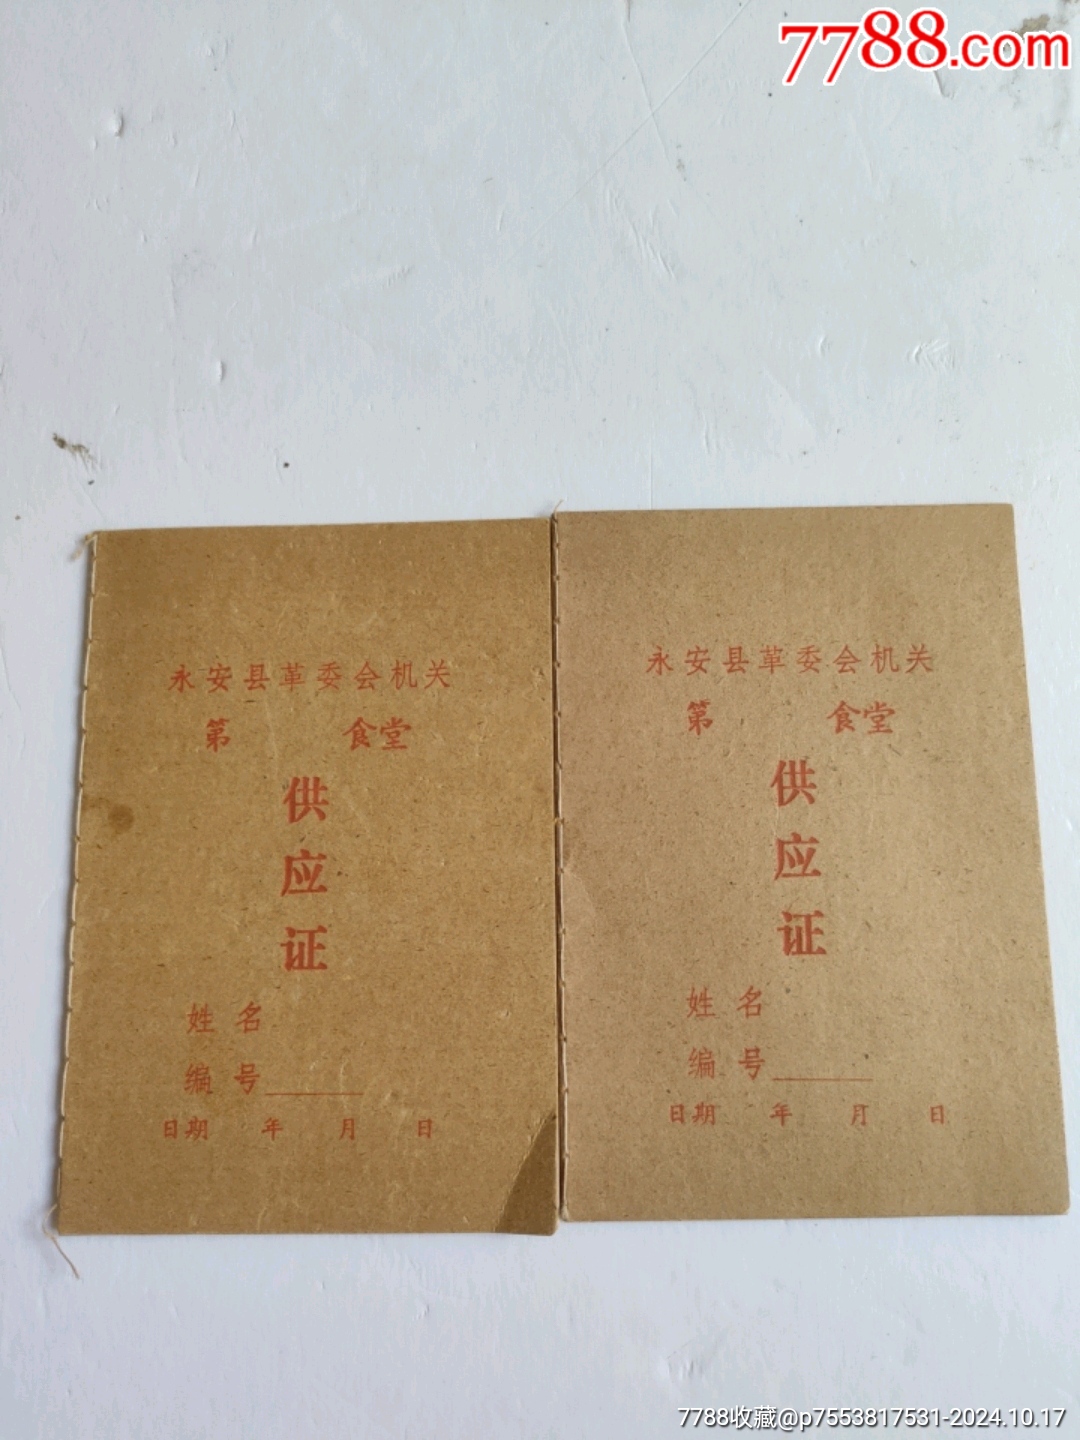 7788.com
永安县革委会机关
第 食堂
供
应
证
姓 名
编 号______
日期 年 月 日
永安县革委会机关
第 食堂
供
应
证
姓 名
编 号______
日期 年 月 日
7788收藏@p7553817531-2024.10.17